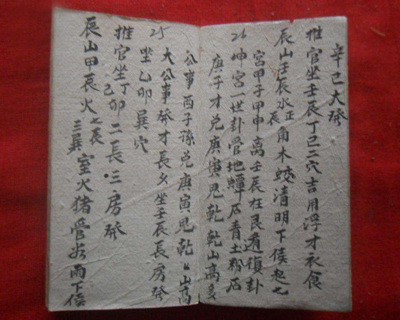 辛巳大發
推官坐壬辰丁巳二穴吉用浮才衣食
辰山壬辰水正辰角木蛟清明下後起之
宮甲子甲申离壬辰柱艮遁復卦
26 坤宮一世卦管地蟑店青土粉店
庚子才兑庚寅見乾乾山高多
公事丙子孫兑庚寅見乾山高
大公事發才長女坐壬辰長房發
25 坐乙卯巽穴
推官坐丁卯己二長三房發
辰山甲辰火之辰三巽室火猪管谷雨下後